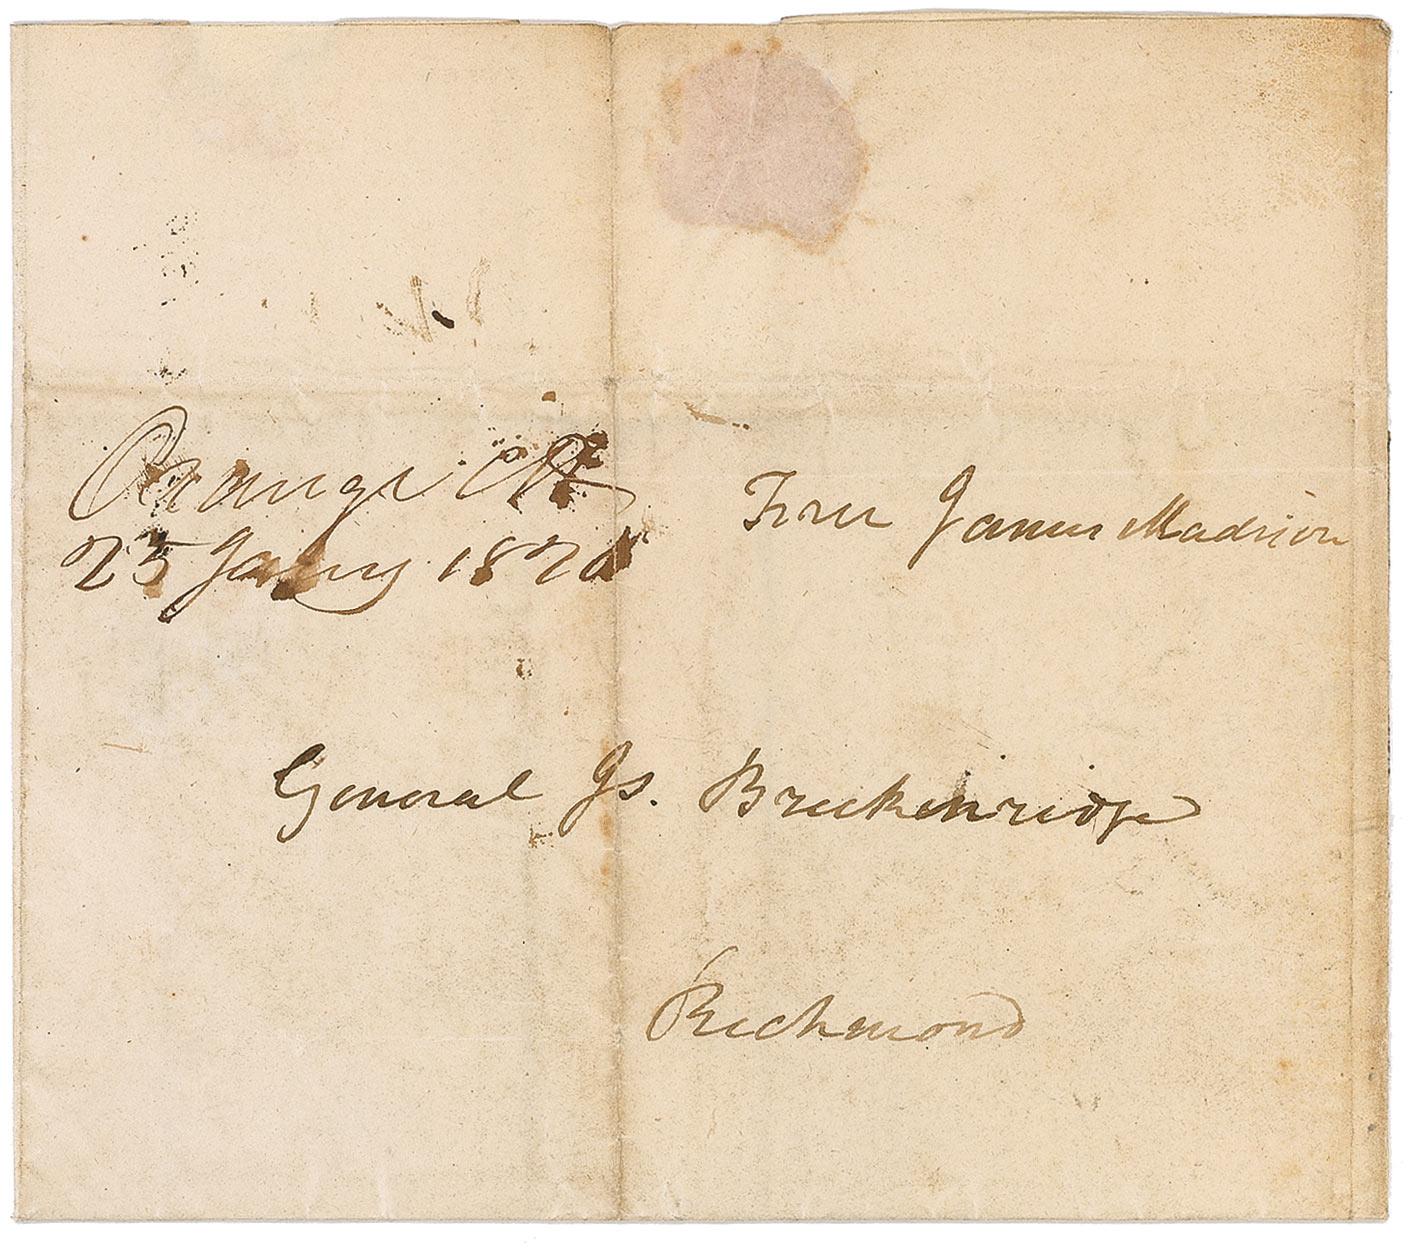 Orange CH
25 Jany
Free James Madison
General Js. Breckenridge
Richmond